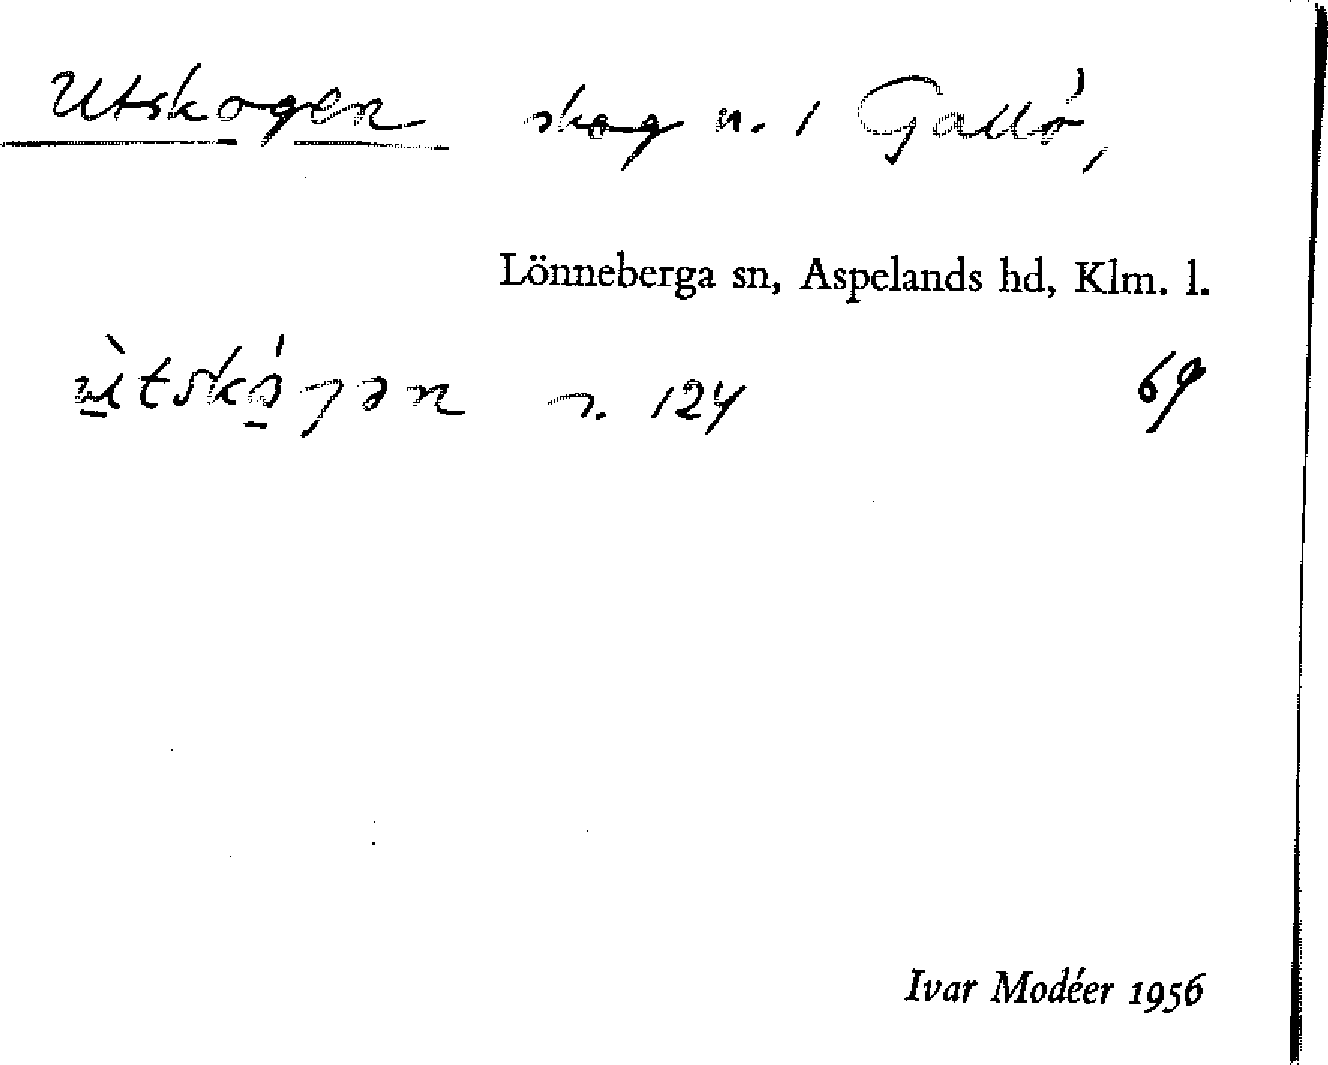 Utskogen skog n. i Gallö,
Lönneberga sn, Aspelands hd, Klm. l.
ùtskó̱gən 124 69
Ivar Modéer 1956